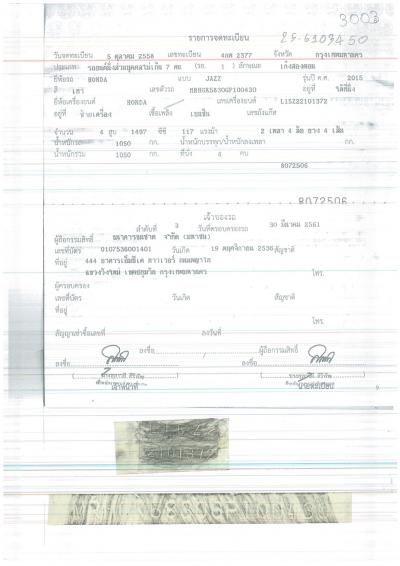 3003
รายการจดทะเบียน
25-6109450
วันจดทะเบียน 5 ตุลาคม 2558 เลขทะเบียน 4กศ 2377 จังหวัด กรุงเทพมหานคร
ประเภท รถยนต์นั่งส่วนบุคคลไม่เกิน 7 คน (รย. 1 ) ลักษณะ เก๋งสองตอน
ยี่ห้อรถ HONDA แบบ JAZZ รุ่นปี ค.ศ. 2015
สี เทา เลขตัวรถ อยู่ที่
ยี่ห้อเครื่องยนต์ HONDA เลขเครื่องยนต์ L15Z21101372
อยู่ที่ เชื้อเพลิง เบนซิน เลขถังแก๊ส
จำนวน 4 สูบ 1497 ซีซี 117 แรงม้า 2 เพลา 4 ล้อ ยาง 4 เส้น
น้ำหนักรถ 1050 กก. น้ำหนักบรรทุก/น้ำหนักลงเพลา กก.
น้ำหนักรวม 1050 กก. ที่นั่ง คน
8072506
8072506
เจ้าของรถ
ลำดับที่ 3 วันที่ครอบครองรถ 30 มีนาคม 2561
ผู้ถือกรรมสิทธิ์ ธนาคารธนชาต จำกัด (มหาชน)
เลขที่บัตร 0107536001401 วันเกิด 19 พฤศจิกายน 2536 สัญชาติ
ที่อยู่ 444 อาคารเอ็มบีเค ทาวเวอร์ ถนนพญาไท
แขวงวังใหม่ เขตปทุมวัน กรุงเทพมหานคร โทร.
ผู้ครอบครอง
เลขที่บัตร วันเกิด สัญชาติ
ที่อยู่
โทร.
สัญญาเช่าซื้อเลขที่ ลงวันที่
ลงชื่อ ผู้ถือกรรมสิทธิ์
ลงชื่อ ลงชื่อ
เจ้าหน้าที่ นายทะเบียน